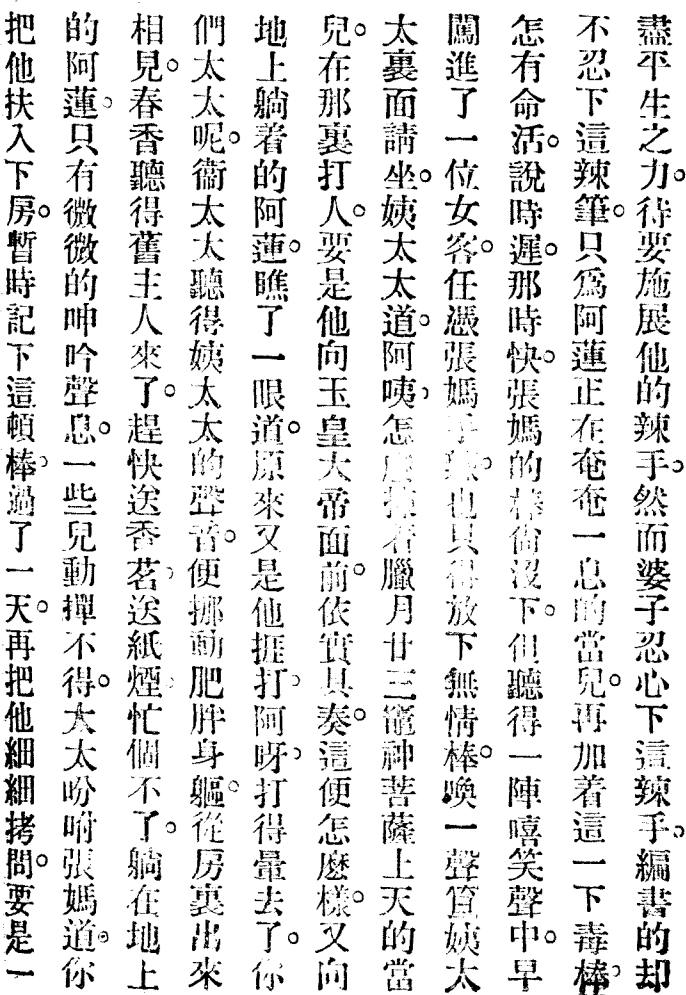 盡平生之力。待要施展他的辣手。然而婆子忍心下這辣手。編書的却
不忍下這辣筆。只爲阿蓮正在奄奄一息的當兒。再加着這一下毒棒。
怎有命活。說時遲。那時快。張媽的棒尙沒下。但聽得一陣嘻笑聲中。早
闖進了一位女客。任憑張媽手辣。也只得放下無情棒。喚一聲宣姨太
太裏面請坐。姨太太道。阿咦、怎麽揀着臘月廿三竈神菩薩上天的當
兒。在那裏打人。要是他向玉皇大帝面前。依實具奏。這便怎麽樣。又向
地上躺着的阿蓮。瞧了一眼道。原來又是他捱打、阿呀、打得暈去了。你
們太太呢。衞太太聽得姨太太的聲音。便挪動肥胖身軀。從房裏出來
相見。春香聽得舊主人來了。趕快送香茗、送紙煙、忙個不了。躺在地上
的阿蓮、只有微微的呻吟聲息。一些兒動撣不得。太太吩咐張媽道。你
把他扶入下房。暫時記下這頓棒、過了一天。再把他細細拷問。要是一